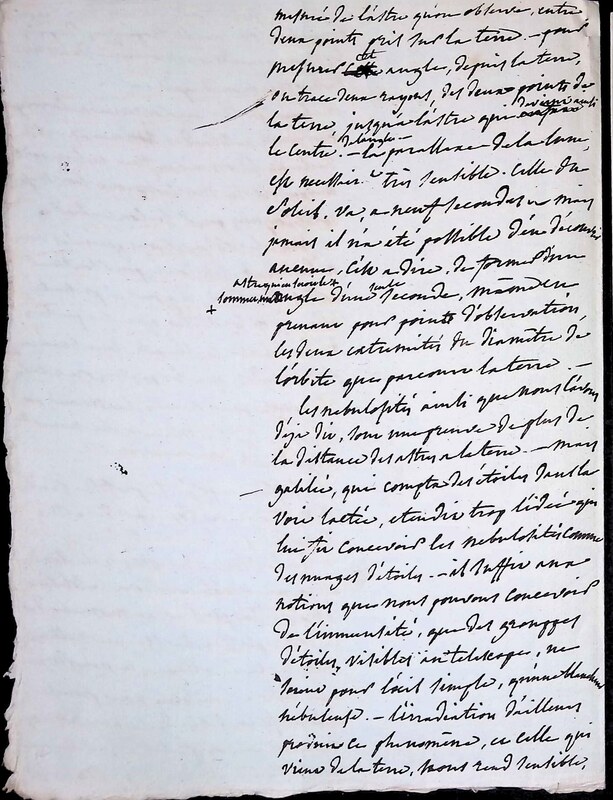 mesuré de l'astre qu'on observe, entre
deux points pris sur la terre. — pour
mesurer cet angle, depuis la terre,
on trace deux rayons, des deux points de
la terre, jusqu'à l'astre que
le centre. — la parallaxe de la lune,
est necessair.t très sensible. Celle du
Soleil, va, a neuf secondes — mais
jamais il n'a été possible d'en découvrir
aucune, C'est a dire, de former d'un
angle d'une seule seconde, même en
prenant pour points d'observation,
les deux extremités du diamètre de
l'orbite que parcourt la terre. —
les nebulosités ainsi que nous l'avons
déja dit, sont une preuve de plus de
la distance des astres a la terre. — mais
galilée, qui compta des étoiles dans la
voie lactée, etendit trop l'idée qui
lui fit concevoir les nebulosités comme
des nuages d'étoiles. — il suffit aux
notions que nous pouvons concevoir
de l'immensité, que des grouppes
d'étoiles, visibles au telescope, ne
soient pour l'œil simple, qu'une blancheur
nébuleuse. — l'irradiation d'ailleurs
produit ce phenomène, et celle qui
vient de la terre, nous rend sensible,